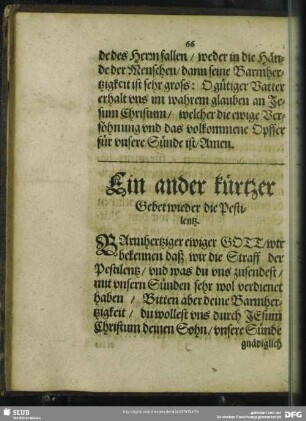 66
de des Herrn fallen / weder in die Hän-
de der Menschen / dann seine Barmher-
tzigkeit ist sehr groß: O gütiger Vatter
erhalt vns im wahrem glauben an Je-
sum Christum / welcher die ewige Ver-
söhnung vnd das volkommene Opffer
für vnsere Sünde ist / Amen.
Ein ander kürtzer
Gebet wieder die Pesti-
lentz.
BArmhertziger ewiger GOTT / wir
bekennen daß wir die Straff der
Pestilentz / vnd was du vns zusendest /
mit vnsern Sünden sehr wol verdienet
haben / Bitten aber deine Barmher-
tzigkeit / du wollest vns durch JEsum
Christum deinen Sohn / vnsere Sünde
gnädiglich
SLUB
DFG